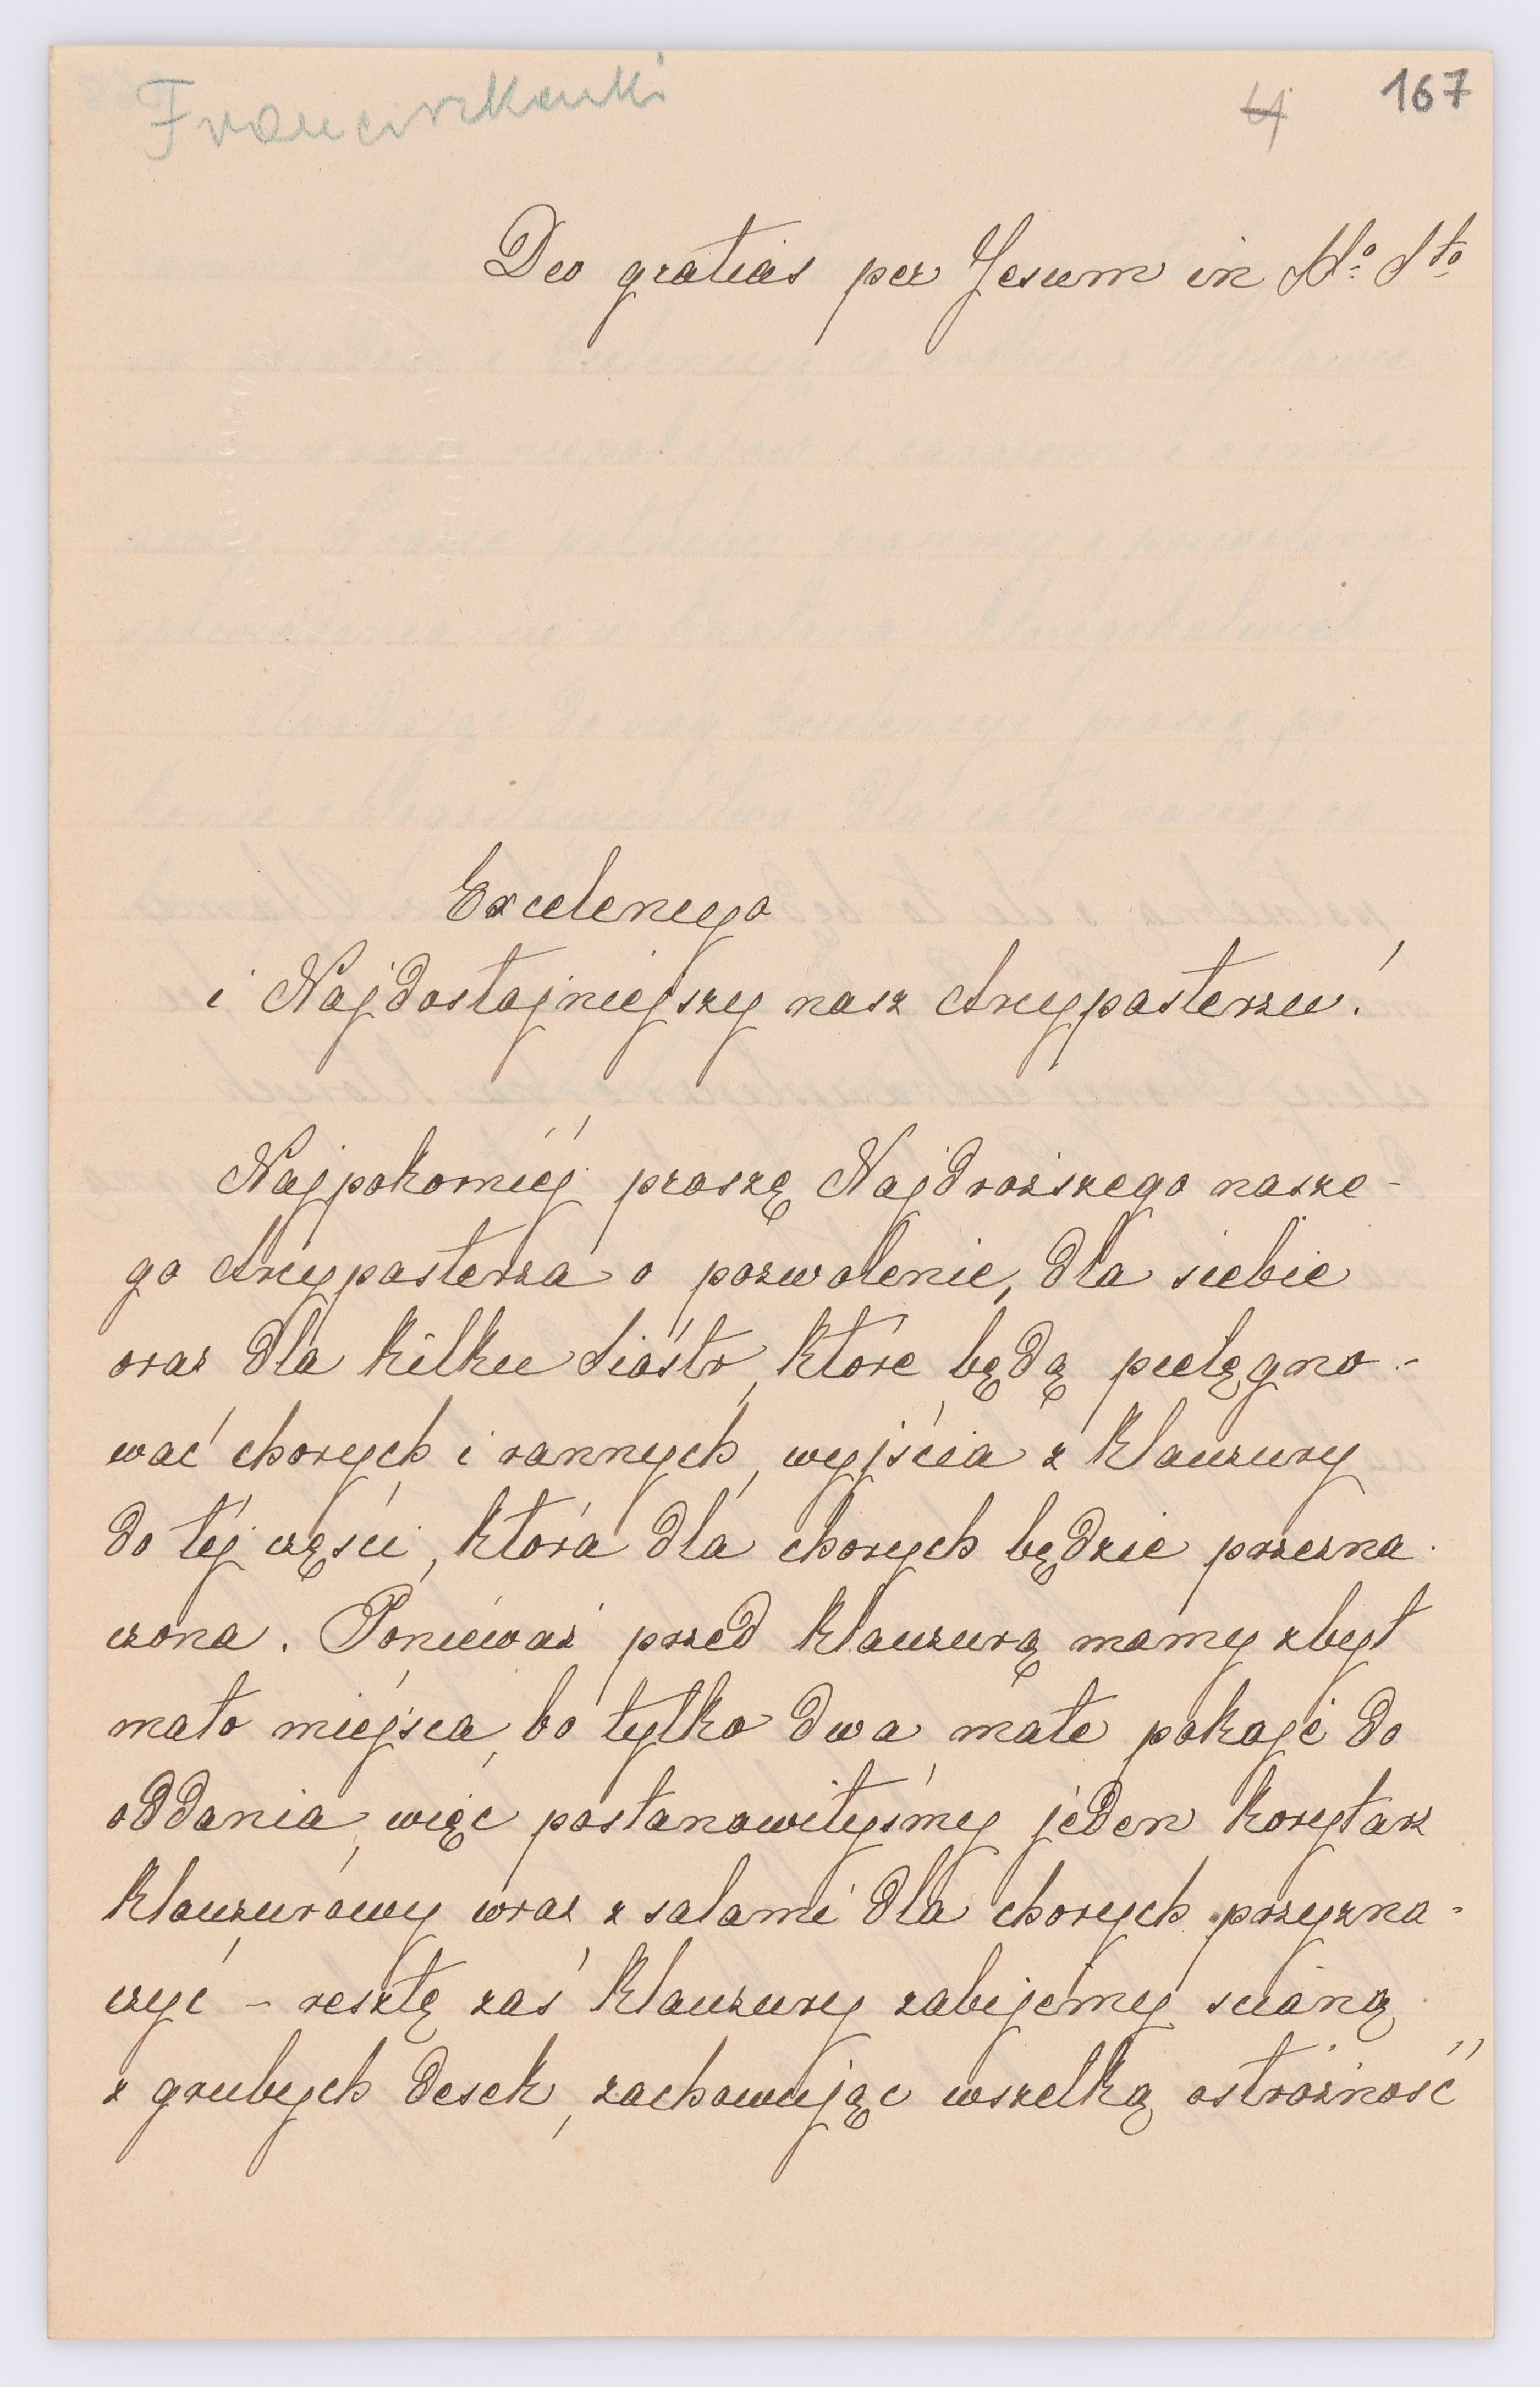 Franciszkanki
4 167
Deo gratias per Jesum in S.º Sto
Excelencyo
i Najdostojniejszy nasz Arcypasterzu!
Najpokorniéj proszę Najdroższego nasze-
go Arcypasterza o pozwolenie, dla siebie
oraz dla kilku Sióstr, które będą pielęgno-
wać chorych i rannych, wyjścia z klauzury
do téj części, która dla chorych będzie przezna
czona. Ponieważ przed klauzurą mamy zbyt
mało miejsca, bo tylko dwa małe pokoje do
oddania, więc postanowiłyśmy jeden korytarz
klauzurowy wraz z salami dla chorych przyzna-
czyć – resztę zaś klauzury zabijemy ścianą
z grubych desek, zachowując wszelką ostrożność